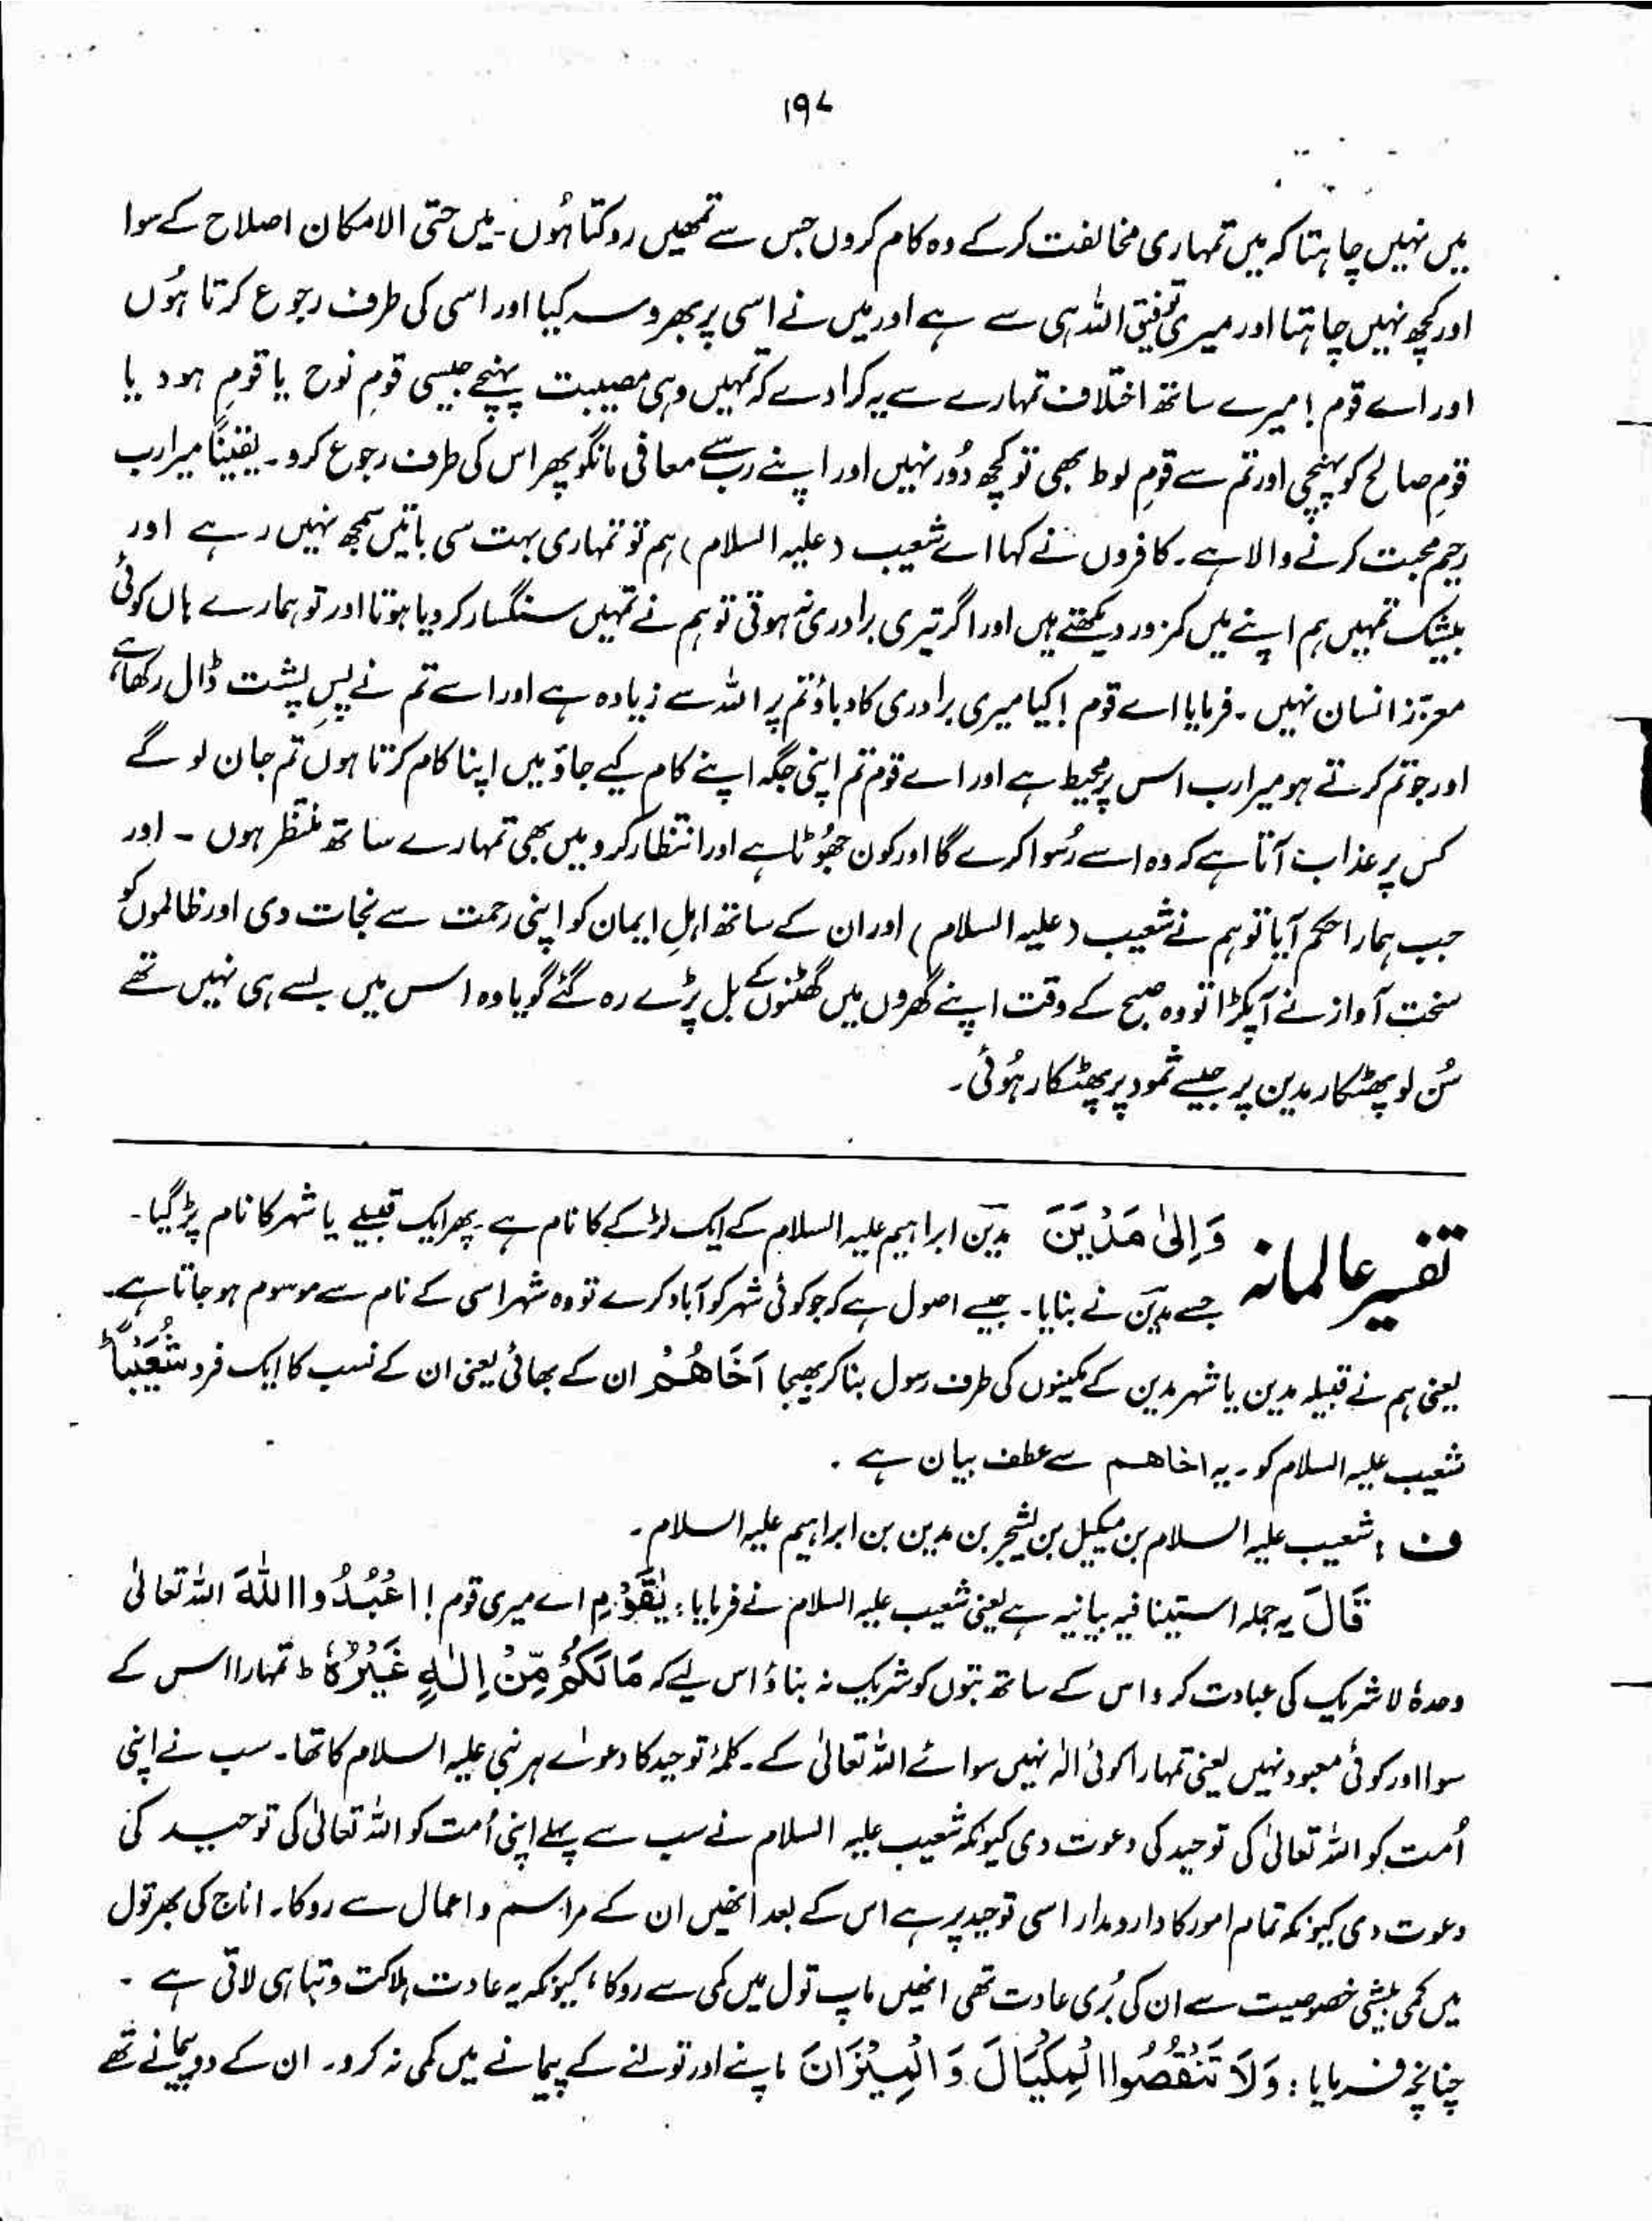 ۱۹۷
میں نہیں چاہتا کہ میں تمہاری مخالفت کرکے وہ کام کروں جس سے تمھیں روکتا ہُوں۔ میں حتی الامکان اصلاح کے سوا
اور کچھ نہیں چاہتا اور میری توفیق اللہ ہی سے ہے اور میں نے اسی پر بھروسہ کیا اور اسی کی طرف رجوع کرتا ہُوں
اور اے قوم! میرے ساتھ اختلاف تمہارے سے یہ کرا دے کہ تمہیں وہی مصیبت پہنچے جیسی قومِ نوح یا قومِ ہود یا
قومِ صالح کو پہنچی اور تم سے قومِ لوط بھی تو کچھ دُور نہیں اور اپنے رب سے معافی مانگو پھر اس کی طرف رجوع کرو۔ یقیناً میرا رب
رحیم محبت کرنے والا ہے۔ کافروں نے کہا اے شعیب (علیہ السلام) ہم تو تمہاری بہت سی باتیں سمجھ نہیں رہے اور
بیشک تمہیں ہم اپنے میں کمزور دیکھتے ہیں اور اگر تیری برادری نہ ہوتی تو ہم نے تمہیں سنگسار کردیا ہوتا اور تو ہمارے ہاں کوئی
معزز انسان نہیں۔ فرمایا اے قوم! کیا میری برادری کا دباؤ تم پر اللہ سے زیادہ ہے اور اسے تم نے پسِ پشت ڈال رکھا ہے،
اور جو تم کرتے ہو میرا رب اس پر محیط ہے اور اے قوم تم اپنی جگہ اپنے کام کیے جاؤ میں اپنا کام کرتا ہوں تم جان لو گے
کس پر عذاب آتا ہے کہ وہ اسے رُسوا کرے گا اور کون جھُوٹا ہے اور انتظار کرو میں بھی تمہارے ساتھ منتظر ہوں ۔ اور
جب ہمارا حکم آیا تو ہم نے شعیب (علیہ السلام) اور ان کے ساتھ اہلِ ایمان کو اپنی رحمت سے نجات دی اور ظالموں کو
سخت آواز نے آپکڑا تو وہ صبح کے وقت اپنے گھروں میں گھٹنوں کے بل پڑے رہ گئے گویا وہ اس میں بسے ہی نہیں تھے
سُن لو پھٹکار مدین پر جیسے ثمود پر پھٹکار ہُوئی۔
تفسیر عالمانہ وَاِلیٰ مَدْیَنَ مدین ابراہیم علیہ السلام کے ایک لڑکے کا نام ہے۔ پھر ایک قبیلے یا شہر کا نام پڑ گیا۔
جسے مدین نے بنایا۔ جیسے اصول ہے کہ جو کوئی شہر کو آباد کرے تو وہ شہر اسی کے نام سے موسوم ہو جاتا ہے۔
یعنی ہم نے قبیلہ مدین یا شہر مدین کے مکینوں کی طرف رسول بنا کر بھیجا اَخَاهُمْ ان کے بھائی یعنی ان کے نسب کا ایک فرد شُعَیْبًا ط
شعیب علیہ السلام کو۔ یہ اخاھم سے عطف بیان ہے ۔
ف : شعیب علیہ السلام بن میکیل بن یشجر بن مدین بن ابراہیم علیہ السلام۔
قَالَ یہ جملہ استینافیہ بیانیہ ہے یعنی شعیب علیہ السلام نے فرمایا: یٰقَوْمِ اے میری قوم! اعْبُدُوا اللّٰہَ اللہ تعالیٰ
وحدہٗ لا شریک کی عبادت کرو اس کے ساتھ بتوں کو شریک نہ بناؤ اس لیے کہ مَا لَکُمْ مِّنْ اِلٰہٍ غَیْرُہٗ ط تمہارا اس کے
سوا اور کوئی معبود نہیں یعنی تمہارا کوئی الٰہ نہیں سوائے اللہ تعالیٰ کے۔ کلمۂ توحید کا دعوٰے ہر نبی علیہ السلام کا تھا۔ سب نے اپنی
اُمت کو اللہ تعالیٰ کی توحید کی دعوت دی کیونکہ شعیب علیہ السلام نے سب سے پہلے اپنی اُمت کو اللہ تعالیٰ کی توحید کی
دعوت دی کیونکہ تمام امور کا دارومدار اسی توحید پر ہے اس کے بعد انھیں ان کے مراسم و اعمال سے روکا۔ اناج کی بھر تول
میں کمی بیشی خصوصیت سے ان کی بُری عادت تھی انھیں ماپ تول میں کمی سے روکا، کیونکہ یہ عادت ہلاکت و تباہی لاتی ہے ۔
چنانچہ فرمایا : وَلَا تَنْقُصُوا الْمِکْیَالَ وَ الْمِیْزَانَ ماپنے اور تولنے کے پیمانے میں کمی نہ کرو۔ ان کے دو پیمانے تھے